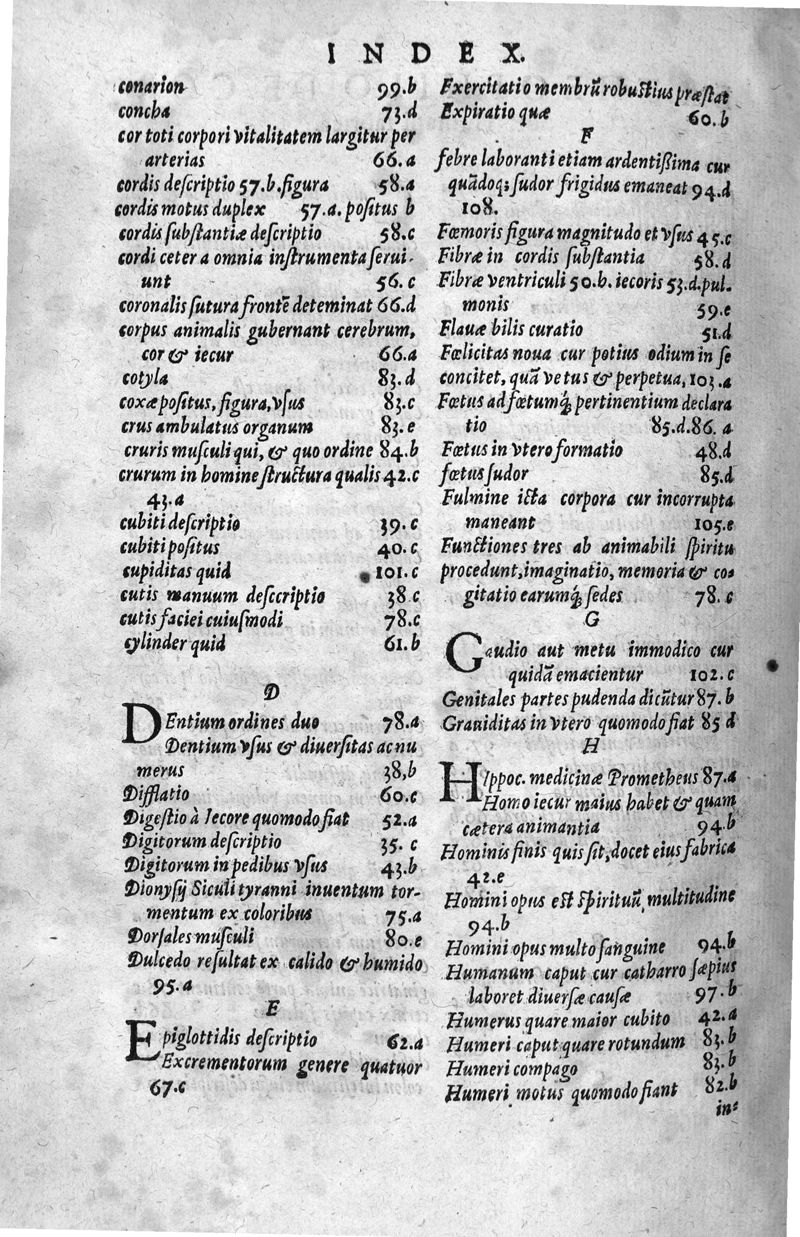 INDEX.
conarion 99.b
concha 73.d
cor toti corpori vitalitatem largitur per
arterias 66.a
cordis descriptio 57.b. figura 58.a
cordis motus duplex 57.a. positus b
cordis substantiæ descriptio 58.c
cordi cetera omnia instrumenta serui-
unt 56.c
coronalis sutura frontē deteminat 66.d
corpus animalis gubernant cerebrum,
cor & iecur 66.a
cotyla 83.d
coxæ positus, figura, vsus 83.c
crus ambulatus organum 83.e
cruris musculi qui, & quo ordine 84.b
crurum in homine structura qualis 42.c
43.a
cubiti descriptio 39.c
cubiti positus 40.c
cupiditas quid 101.c
cutis manuum desccriptio 38.c
cutis faciei cuiusmodi 78.c
cylinder quid 61.b
D
DEntium ordines duo 78.a
Dentium vsus & diuersitas ac nu
merus 38,b
Difflatio 60.c
Digestio à Iecore quomodo fiat 52.a
Digitorum descriptio 35. c
Digitorum in pedibus vsus 43.b
Dionysij Siculi tyranni inuentum tor-
mentum ex coloribus 75.a
Dorsales musculi 80.e
Dulcedo resultat ex calido & humido
95.a
E
Epiglottidis descriptio 62.a
Excrementorum genere quatuor
67.c
Exercitatio membrū robustius præstat
Expiratio quæ 60.b
F
febre laboranti etiam ardentißima cur
quādoq; sudor frigidus emaneat 94.d
108.
Fœmoris figura magnitudo et vsus 45.c
Fibræ in cordis substantia 58.d
Fibræ ventriculi 50.b. iecoris 53.d. pul-
monis 59.e
Flauæ bilis curatio 51.d
Fœlicitas noua cur potius odium in se
concitet, quā vetus & perpetua, 103.a
Fœtus ad fœtumq́; pertinentium declara
tio 85.d.86. a
Fœtus in vtero formatio 48.d
fœtus sudor 85.d
Fulmine icta corpora cur incorrupta
maneant 105.e
Functiones tres ab animabili spiritu
procedunt, imaginatio, memoria & co-
gitatio earumq́; sedes 78.c
G
Gaudio aut metu immodico cur
quidā emacientur 102.c
Genitales partes pudenda dicūtur 87. b
Grauiditas in vtero quomodo fiat 85 d
H
HIppoc. medicinæ Prometheus 87.a
Homo iecur maius habet & quam
cætera animantia 94.b
Hominis finis quis sit, docet eius fabrica
42.e
Homini opus est spirituū multitudine
94.b
Homini opus multo sanguine 94.b
Humanum caput cur catharro sæpius
laboret diuersæ causæ 97.b
Humerus quare maior cubito 42.a
Humeri caput quare rotundum 83.b
Humeri compago 83.b
Humeri motus quomodo fiant 82.b
in-